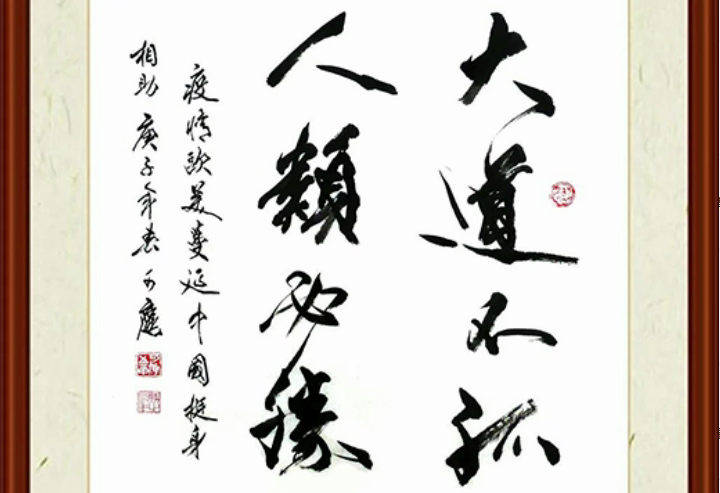 大道不孤
人類必勝
疫情歐美蔓延中國挺身
相助庚子年春